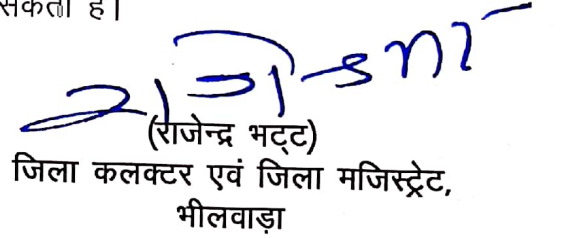 सकता है।
(राजेन्द्र भट्ट)
जिला कलक्टर एवं जिला मजिस्ट्रेट,
भीलवाड़ा